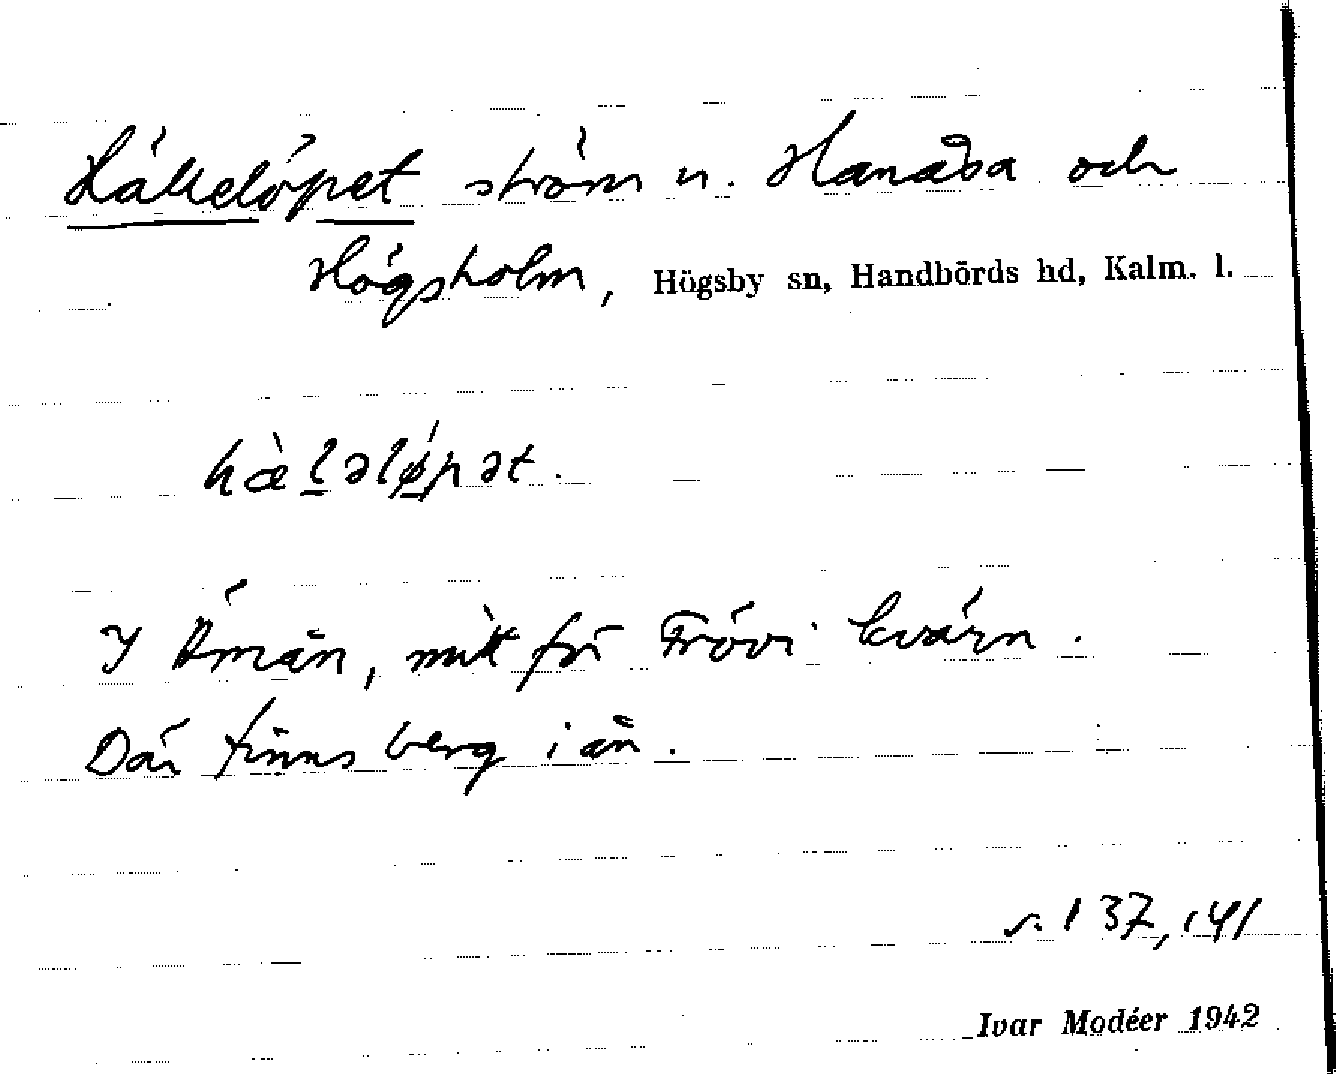 Källelöpet ström u. Hanåsa och
Högsholm, Högsby sn, Handbörds hd, Kalm. l.
hæ̀lələ́pət.
I Emån, mitt för Frövi kvarn.
Där finns berg i ån.
s. 137, 141
Ivar Modéer 1942